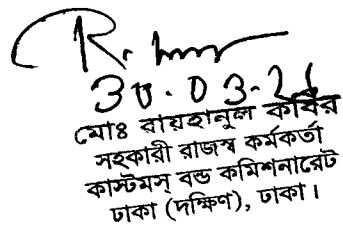 30.03.2
মোঃ রায়হানুল কবির
সহকারী রাজস্ব কর্মকর্তা
কাস্টমস্ বন্ড কমিশনারেট
ঢাকা (দক্ষিণ), ঢাকা।